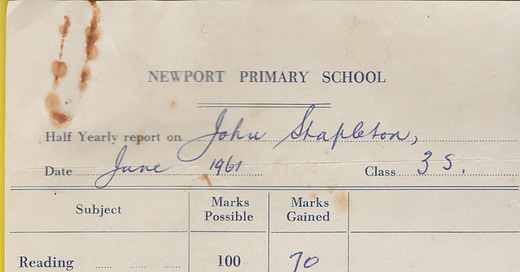 NEWPORT PRIMARY SCHOOL
Half Yearly report on John Stapleton,
Date June 1961 Class 3 S.
Subject Marks Possible Marks Gained
Reading 100 70